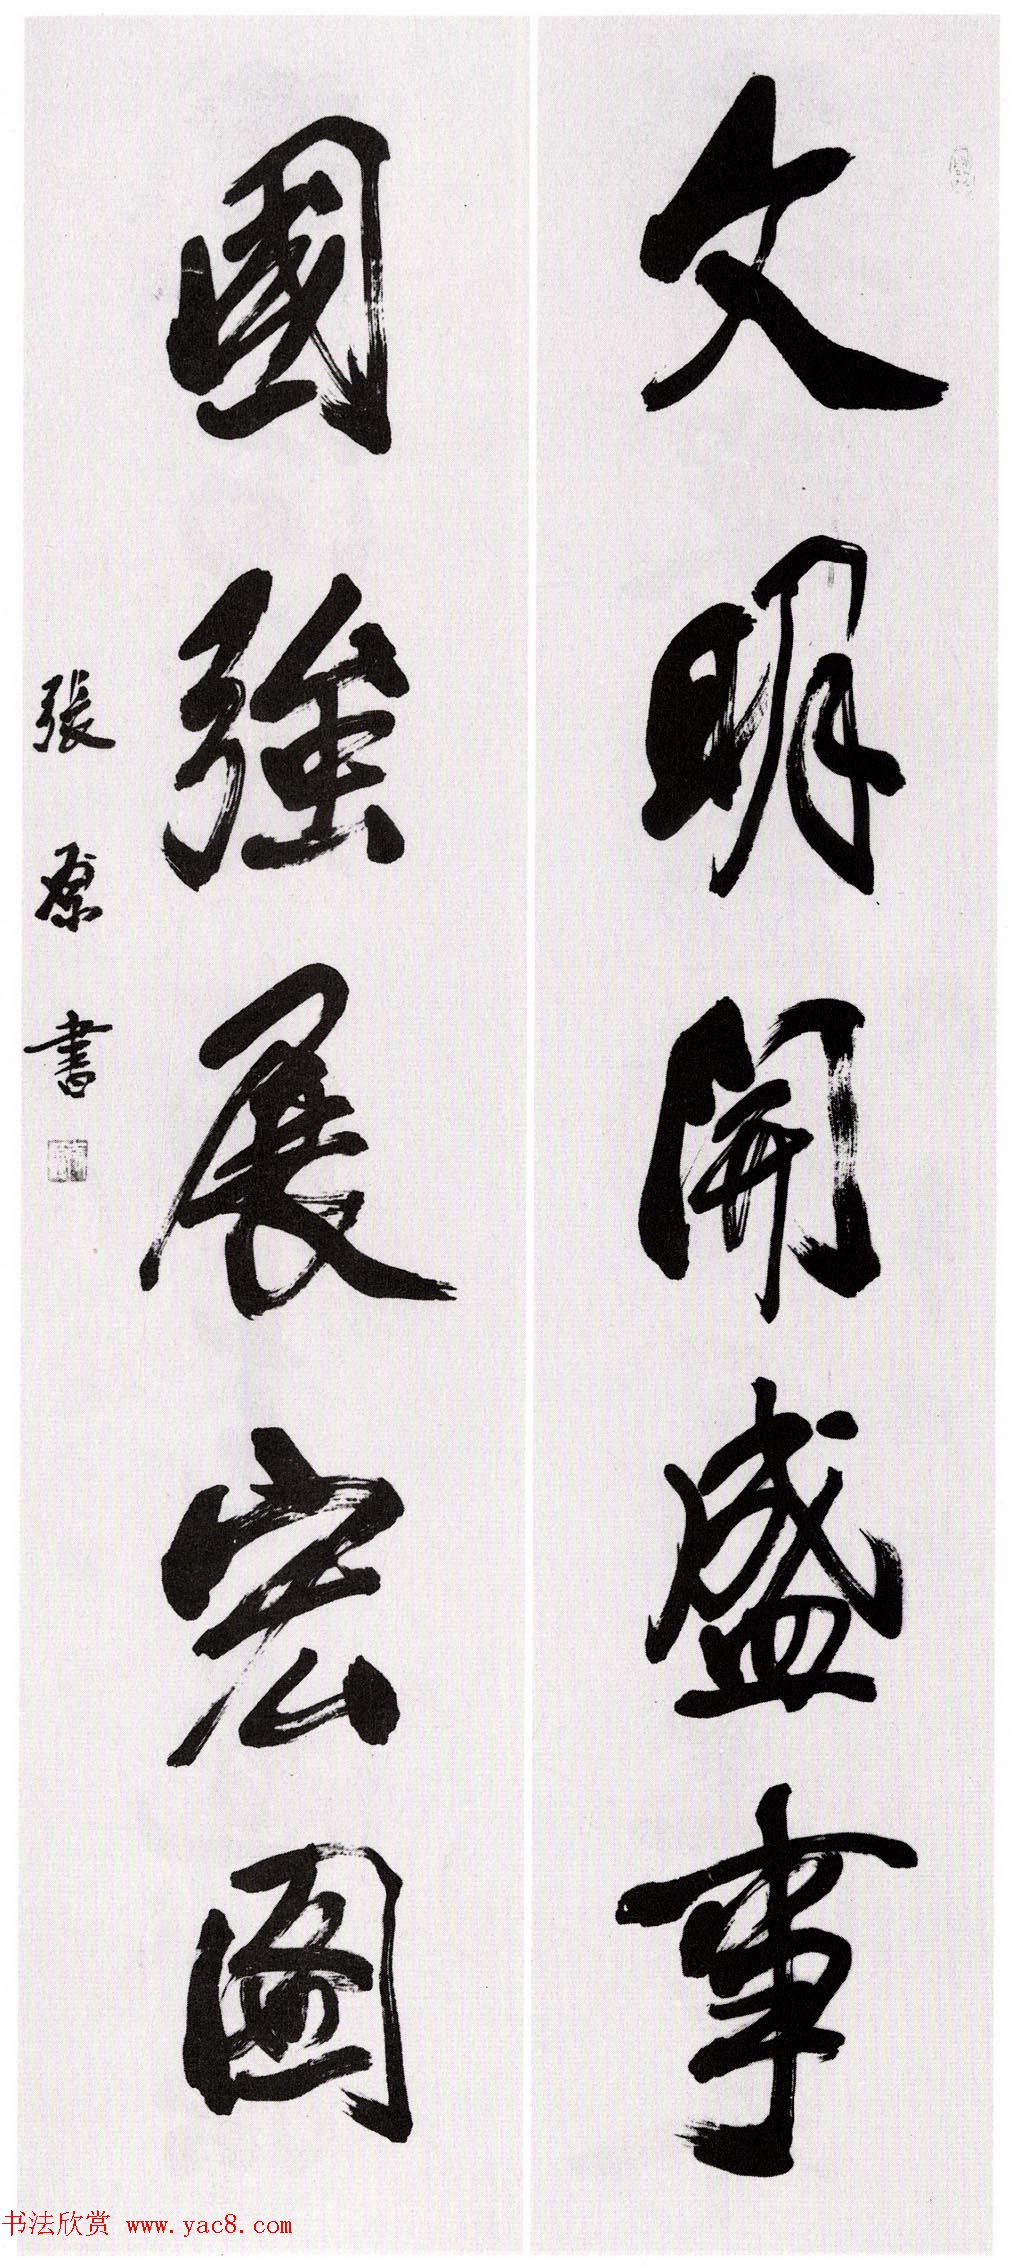 文明開盛事
國強展宏圖
張原書
书法欣赏 www.yac8.com